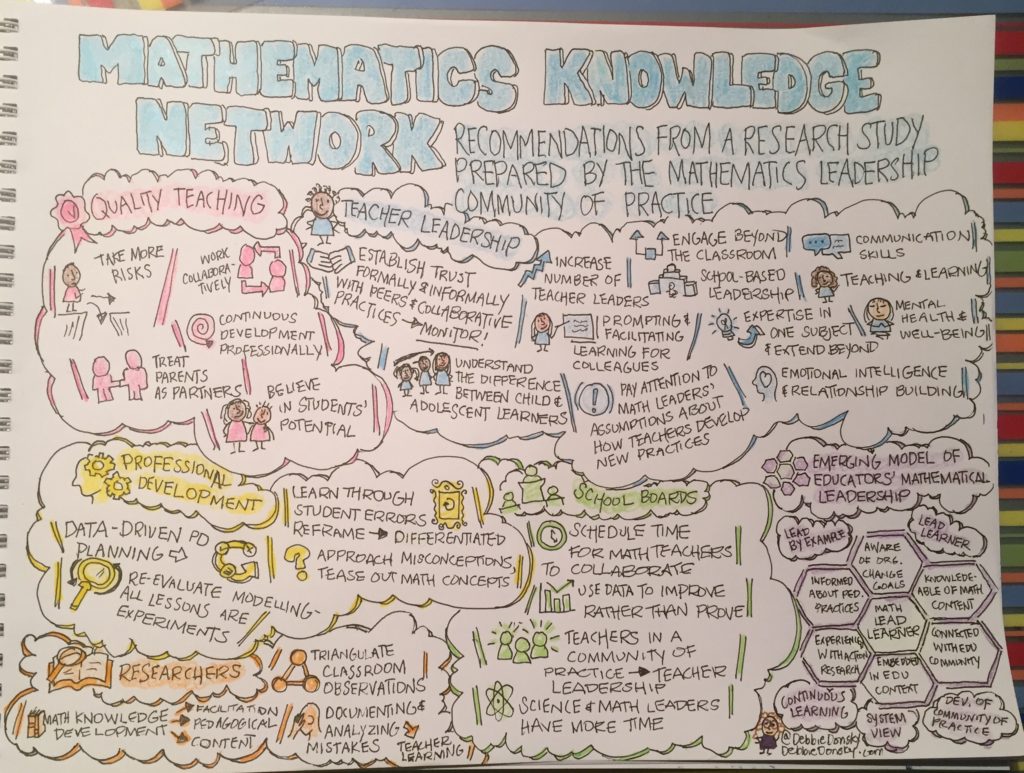 MATHEMATICS KNOWLEDGE
NETWORK
RECOMMENDATIONS FROM A RESEARCH STUDY
PREPARED BY THE MATHEMATICS LEADERSHIP
COMMUNITY OF PRACTICE
QUALITY TEACHING
TAKE MORE
RISKS
WORK
COLLABORA-
TIVELY
CONTINUOUS
DEVELOPMENT
PROFESSIONALLY
TREAT
PARENTS
AS PARTNERS
BELIEVE
IN STUDENTS'
POTENTIAL
TEACHER LEADERSHIP
ESTABLISH TRUST
FORMALLY & INFORMALLY
WITH PEERS & COLLABORATIVE
PRACTICES → MONITOR!
UNDERSTAND
THE DIFFERENCE
BETWEEN CHILD &
ADOLESCENT LEARNERS
INCREASE
NUMBER OF
TEACHER LEADERS
PROMPTING &
FACILITATING
LEARNING FOR
COLLEAGUES
PAY ATTENTION TO
MATH LEADERS'
ASSUMPTIONS ABOUT
HOW TEACHERS DEVELOP
NEW PRACTICES
ENGAGE BEYOND
THE CLASSROOM
SCHOOL-BASED
LEADERSHIP
EXPERTISE IN
ONE SUBJECT
& EXTEND BEYOND
COMMUNICATION
SKILLS
TEACHING & LEARNING
MENTAL
HEALTH &
WELL-BEING
EMOTIONAL INTELLIGENCE
& RELATIONSHIP BUILDING
PROFESSIONAL
DEVELOPMENT
DATA-DRIVEN PD
PLANNING ⇨
RE-EVALUATE MODELLING-
ALL LESSONS ARE
EXPERIMENTS
LEARN THROUGH
STUDENT ERRORS
REFRAME → DIFFERENTIATED
? APPROACH MISCONCEPTIONS,
TEASE OUT MATH CONCEPTS
SCHOOL BOARDS
SCHEDULE TIME
FOR MATH TEACHERS
TO COLLABORATE
USE DATA TO IMPROVE
RATHER THAN PROVE
TEACHERS IN A
COMMUNITY OF
PRACTICE → TEACHER
LEADERSHIP
SCIENCE & MATH LEADERS
HAVE MORE TIME
RESEARCHERS
MATH KNOWLEDGE
DEVELOPMENT
→ FACILITATION
→ PEDAGOGICAL
→ CONTENT
TRIANGULATE
CLASSROOM
OBSERVATIONS
DOCUMENTING &
ANALYZING
MISTAKES →
TEACHER
LEARNING
EMERGING MODEL OF
EDUCATORS' MATHEMATICAL
LEADERSHIP
LEAD
BY EXAMPLE
LEAD
LEARNER
AWARE
OF ORG.
CHANGE
GOALS
INFORMED
ABOUT PED.
PRACTICES
KNOWLEDGE-
ABLE OF MATH
CONTENT
MATH
LEAD
LEARNER
EXPERIENCE
WITH ACTION
RESEARCH
CONNECTED
WITH EDU
COMMUNITY
EMBEDDED
IN EDU
CONTEXT
CONTINUOUS
LEARNING
SYSTEM
VIEW
DEV. OF
COMMUNITY OF
PRACTICE
@DebbieDonsky
DebbieDonsky.com